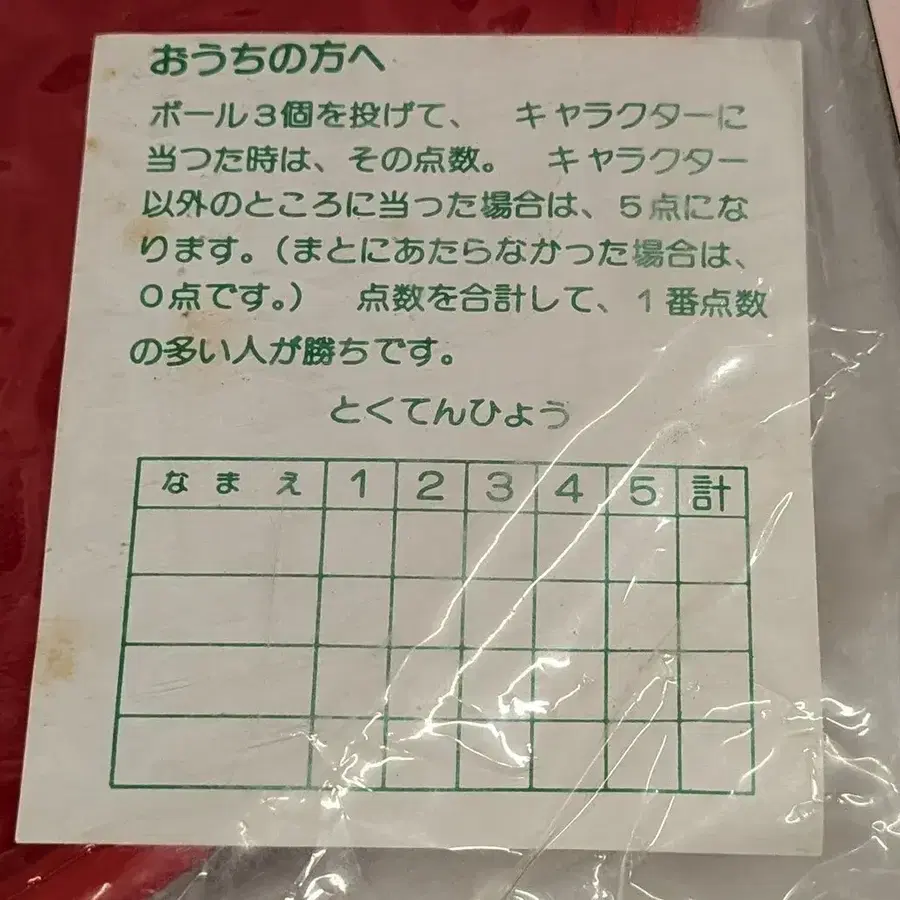 おうちの方へ
ボール3個を投げて、 キャラクターに
当つた時は、その点数。 キャラクター
以外のところに当った場合は、5点にな
ります。(まとにあたらなかった場合は、
0点です。) 点数を合計して、1番点数
の多い人が勝ちです。
とくてんひょう
なまえ 1 2 3 4 5 計